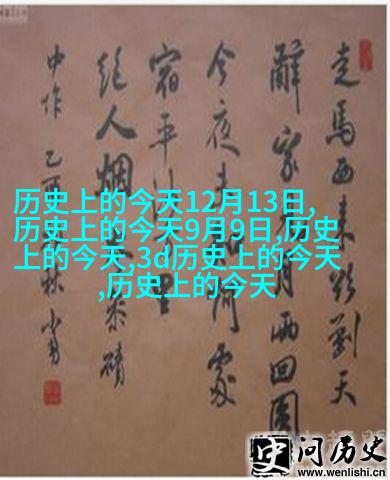 走馬西来欲到天
辭家月兩回圓
今夜處
宿平
絕人烟參磧
中作 乙酉秋
历史上的今天12月13日,
历史上的今天9月9日,历史
上的今天,3d历史上的今天
,历史上的今天
史问历史
www.wenlishi.cn